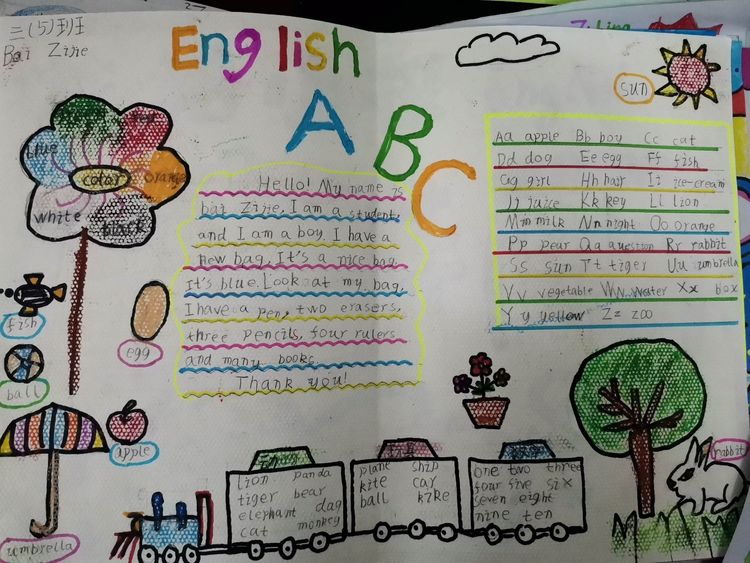 三(5)班
Bai Zijie
English
ABC
sun
blue
red
color
orange
white
black
Hello! My name is
bai Zijie, I am a student,
and I am a boy, I have a
new bag, It's a nice bag,
It's blue. Look at my bag,
I have a pen, two erasers,
three pencils, four rulers
and many books.
Thank you!
Aa apple Bb boy Cc cat
Dd dog Ee egg Ff fish
Gg girl Hh hair Ii ice-cream
Jj juice Kk key Ll lion
Mm milk Nn night Oo orange
Pp pear Qq question Rr rabbit
Ss sun Tt tiger Uu umbrella
Vv vegetable Ww water Xx box
Yy yellow Zz zoo
fish
egg
ball
apple
umbrella
rabbit
lion panda
tiger bear
elephant dag
cat monkey
plane ship
kite car
ball kike
one two three
four five six
seven eight
nine ten